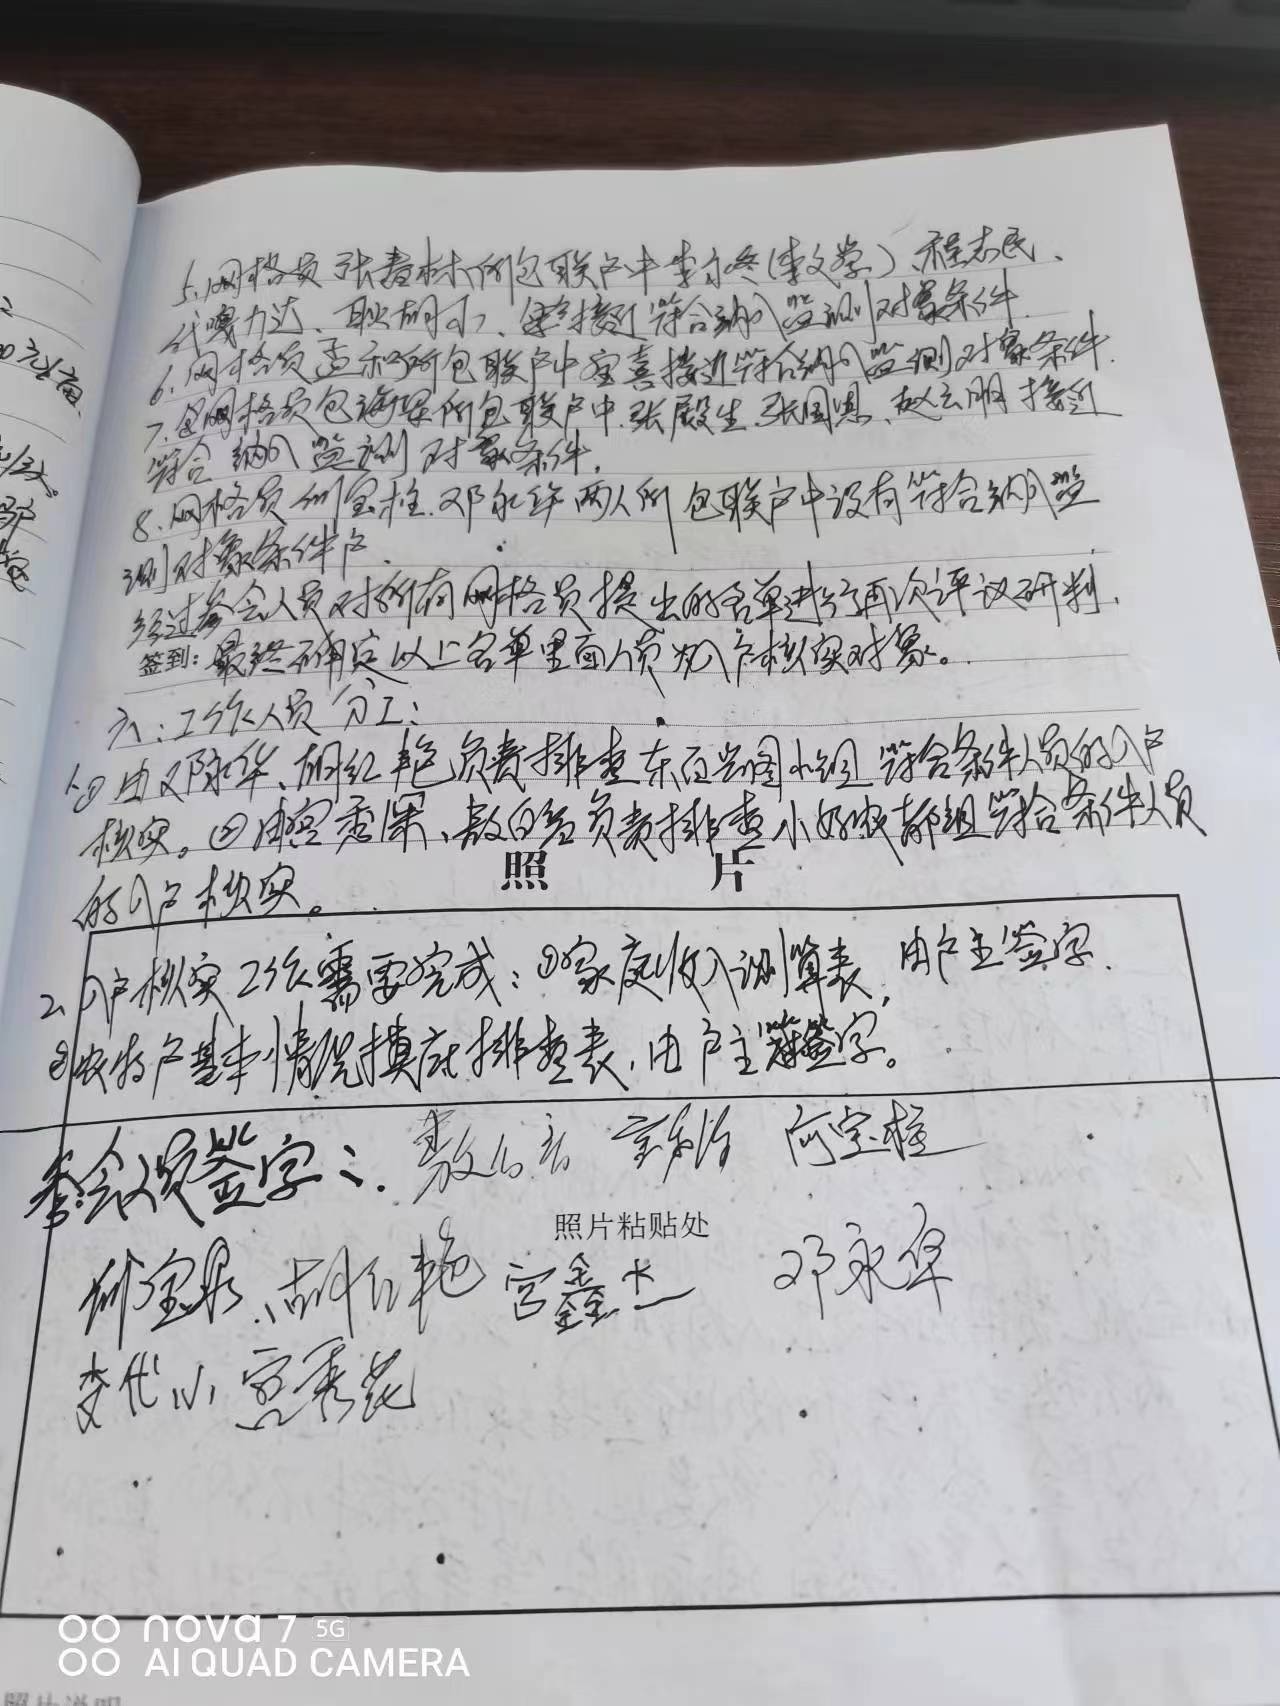 5、网格员张春林所包联户中李尔冬(李文学)、程志民、
代嘎力达、耿胡小、接近符合纳入监测对象条件.
6、网格员孟和所包联户中宝喜接近符合纳入监测对象条件.
7、网格员包海军所包联户中.张殿生.张国恩、赵云朋接近
符合纳入监测对象条件.
8、网格员何宝柱.邓永华两人所包联户中没有符合纳入监
测对象条件户.
经过参会人员对所有网格员提出的名单进行再次评议研判.
签到: 最终确定以上名单里面人员为入户核实对象。
六:工作人员分工:
1、①由邓永华、胡红艳负责排查东百兴图小组符合条件人员的入户
核实。②由宫秀、敖白音负责排查小好城都组符合条件人员
照 片
的入户核实。
2、入户核实工作需要完成:①家庭收入测算表,由户主签字.
②农牧户基本情况摸底排查表,由户主签字。
参会人员签字:敖白音 何宝柱
照片粘贴处
何宝泉、胡红艳 宫鑫杰 邓永华
李代小 宫秀花
nova 7 5G
AI QUAD CAMERA